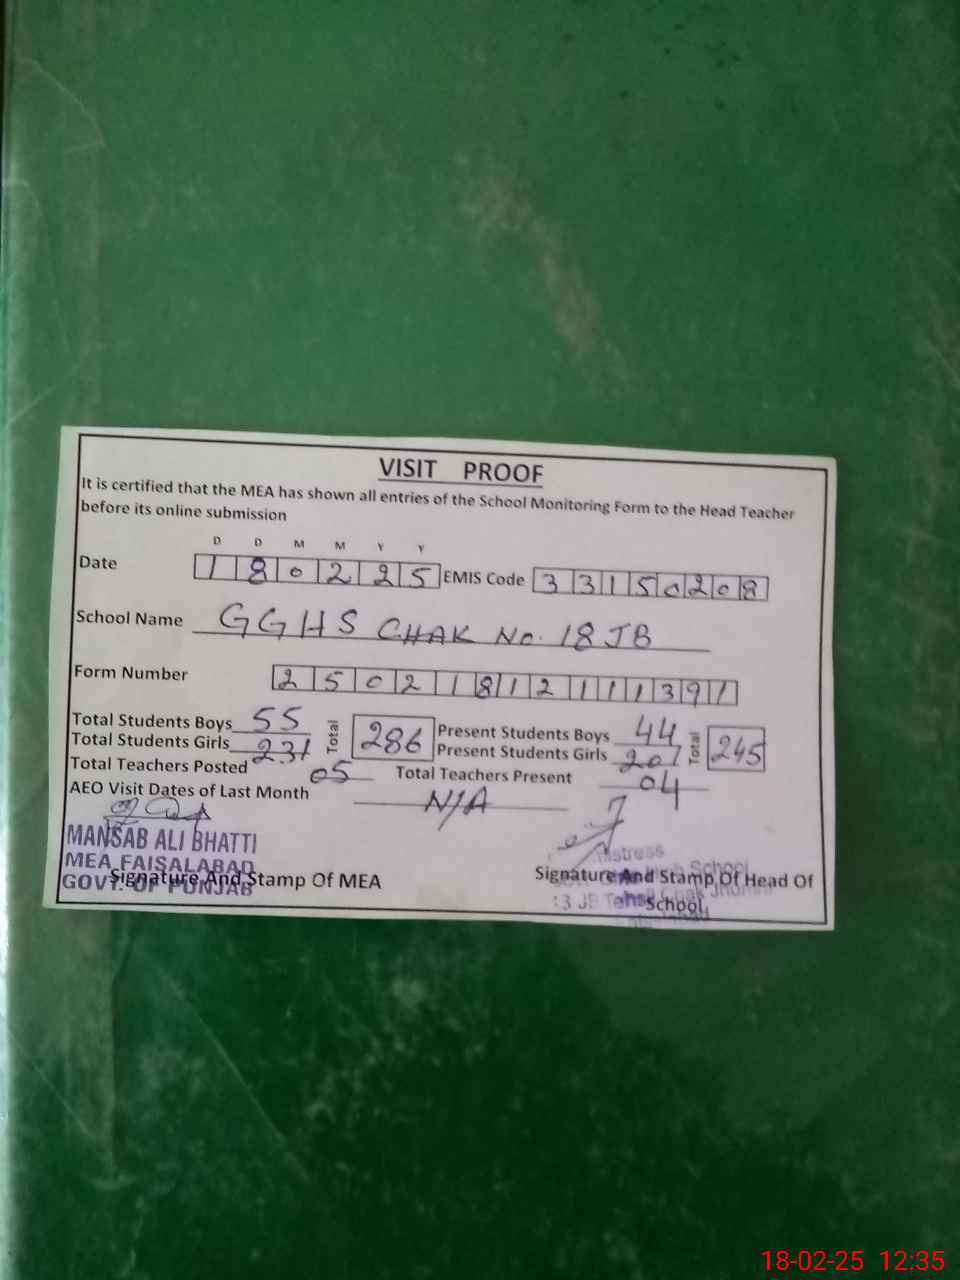 VISIT PROOF
It is certified that the MEA has shown all entries of the School Monitoring Form to the Head Teacher
before its online submission
D D M M Y Y
Date 1 8 0 2 2 5 EMIS Code 3 3 1 5 0 2 0 8
School Name GGHS CHAK No. 18 JB
Form Number 2 5 0 2 1 8 1 2 1 1 1 3 9 1
Total Students Boys 55 Total 286 Present Students Boys 44 Total 245
Total Students Girls 231 Present Students Girls 201
Total Teachers Posted 05 Total Teachers Present 04
AEO Visit Dates of Last Month N/A
MANSAB ALI BHATTI
MEA FAISALABAD
GOVT. OF PUNJAB
Signature And Stamp Of MEA
Signature And Stamp Of Head Of
School
18-02-25 12:35